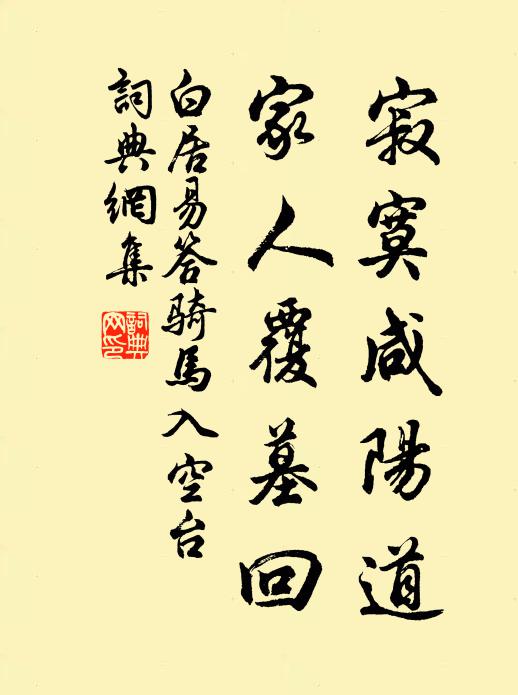 寂寞咸陽道
家人覆墓回
白居易答骑馬入空台
詞典網集
詞典
网印